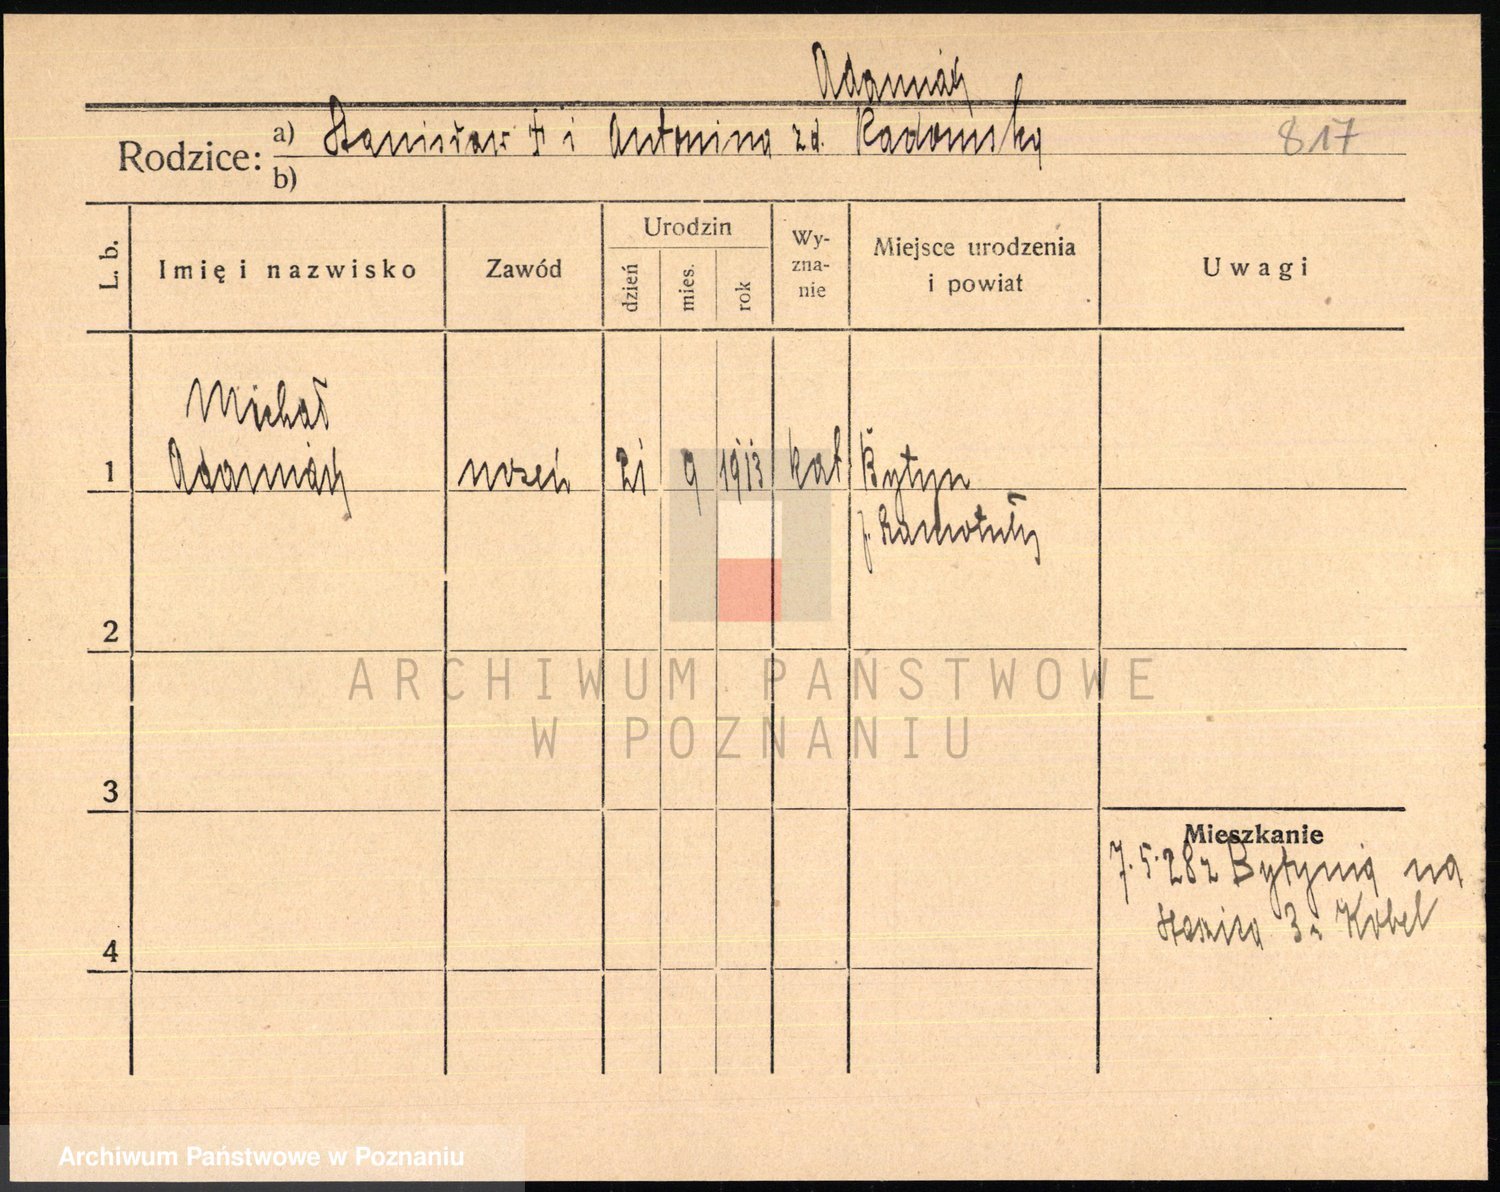 Adamiak
Rodzice: a) Stanisław † i Antonina zd. Radomska 817
b)
L. b. Imię i nazwisko Zawód Urodzin dzień mies. rok Wy-zna-nie Miejsce urodzenia i powiat Uwagi
Michał
1 Adamiak uczeń 21 9 1913 kat Bytyn
p. Szamotuły
2
ARCHIWUM PAŃSTWOWE
W POZNANIU
3
Mieszkanie
7.5.28 z Bytynia na
3 Kobel
4
Archiwum Państwowe w Poznaniu